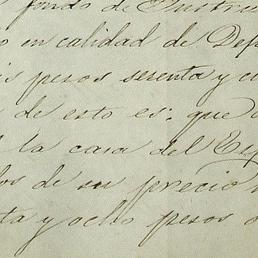 fondo de Instru
o en calidad de Dep
is pesos sesenta y c
de esto es: que
la casa del Esp
los de su precio
ta y ocho pesos